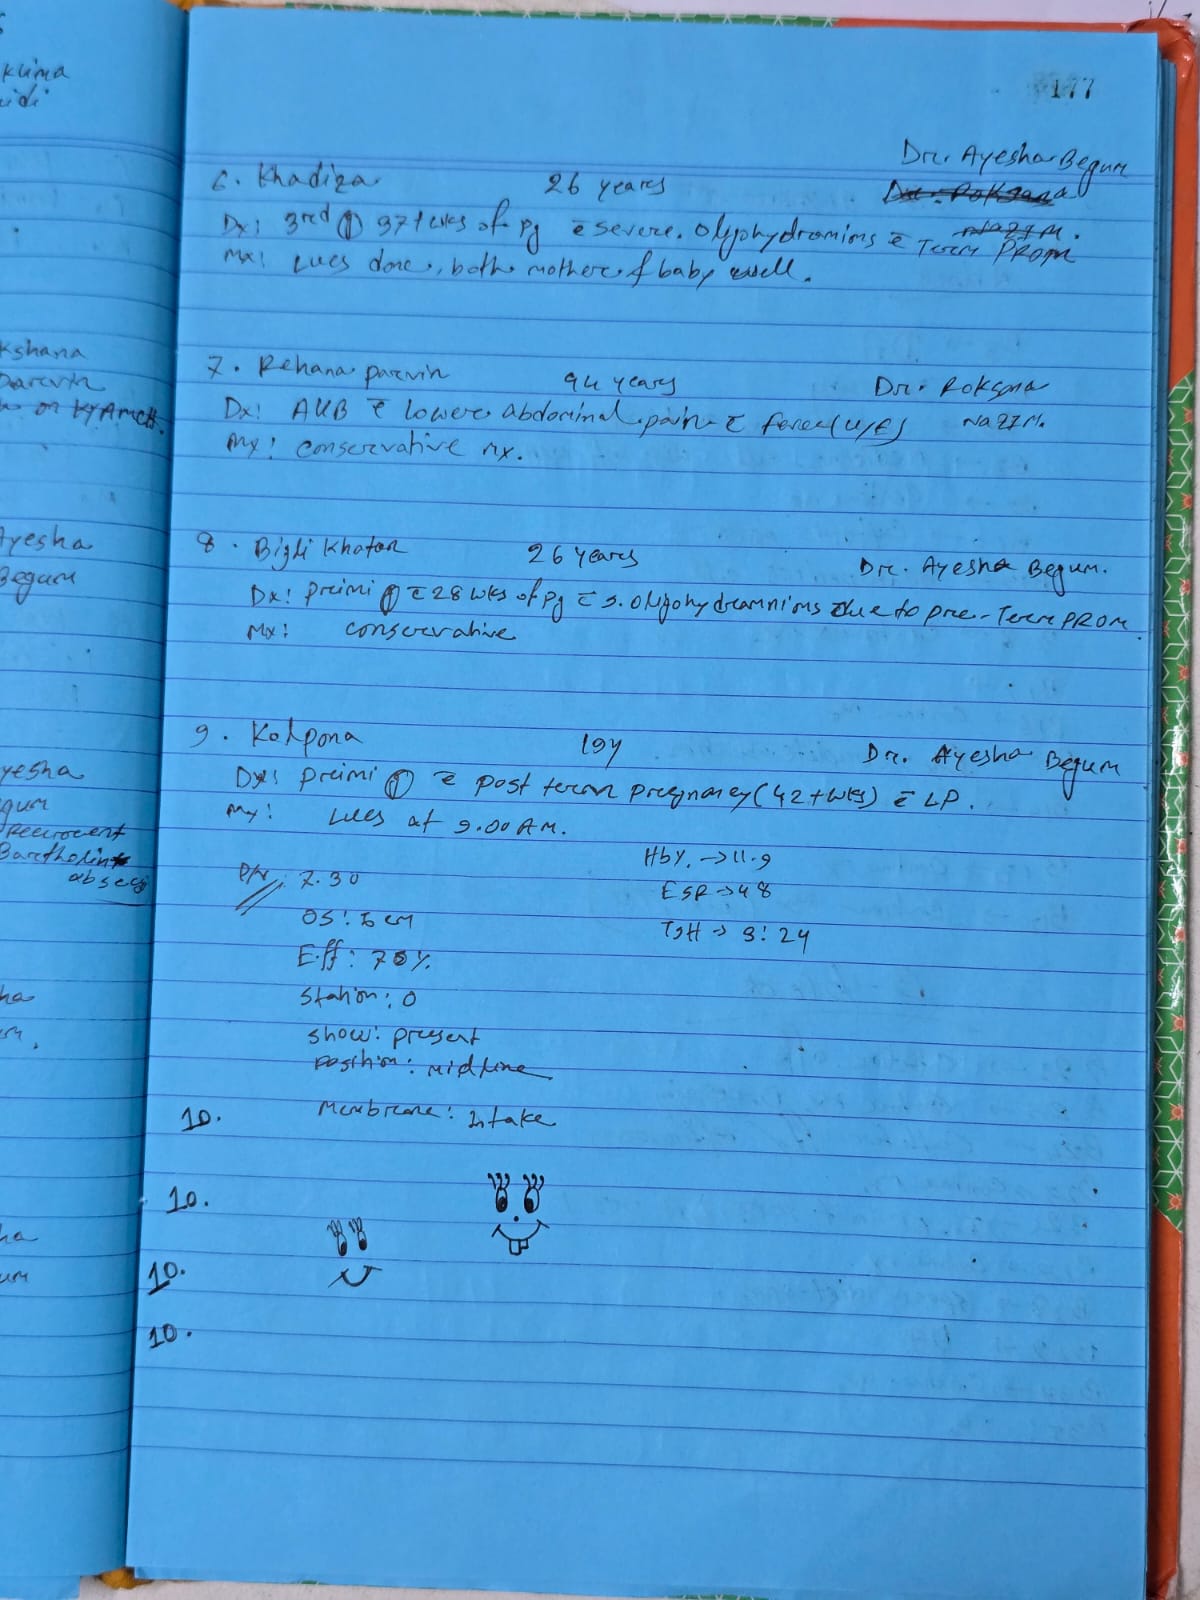 177
6. Khadiza 26 years Dr. Ayesha Begum
Dx: 3rd 37+wks of pg c̄ severe. Olygohydromions c̄ Term PROM
Mx: LUCS done, both mother & baby well.
7. Rehana parvin 44 years Dr. Roksana
Dx: AUB c̄ lower abdominal pain c̄ fever(U/E) NAZIM.
Mx: conservative Mx.
8. Bijli Khaton 26 years Dr. Ayesha Begum.
Dx: primi c̄ 28 wks of pg c̄ s. oligohydramnions due to pre-Term PROM.
Mx: conservative
9. Kalpona 19y Dr. Ayesha Begum
Dx: primi c̄ post term pregnancy (42+wks) c̄ LP.
Mx: LUCS at 9.00 AM.
P/V: 7.30 Hb%. →11.9
OS: 5 cm ESR →48
Eff: 70%. TSH → 3:24
Station: 0
show: present
position: midline
Membrane: Intake
10.
10.
10.
10.
klima
kshana
Parvin
Ayesha
Begum
yesha
gum
Reccrocent
Bartholin
absecs